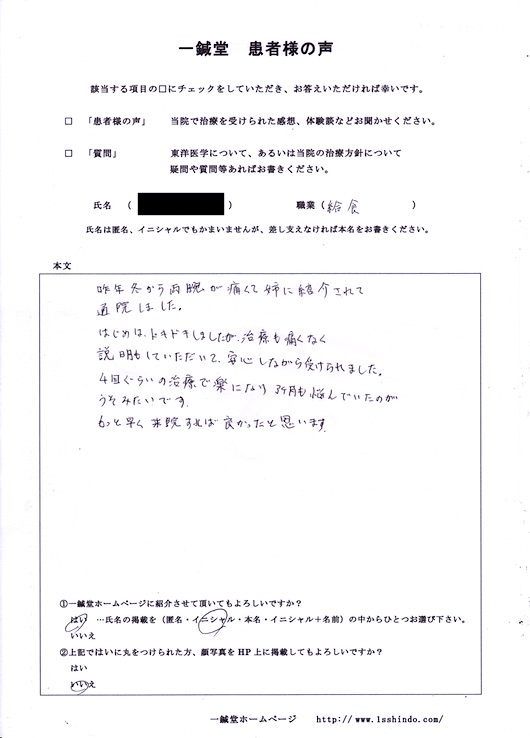 一鍼堂 患者様の声
該当する項目の□にチェックをしていただき、お答えいただければ幸いです。
□ 「患者様の声」 当院で治療を受けられた感想、体験談などお聞かせください。
□ 「質問」 東洋医学について、あるいは当院の治療方針について
疑問や質問等あればお書きください。
氏名 ( ) 職業 (給食 )
氏名は匿名、イニシャルでもかまいませんが、差し支えなければ本名をお書きください。
本文
昨年冬から両腕が痛くて姉に紹介されて
通院しました。
はじめは、ドキドキしましたが、治療も痛くなく
説明もしていただいて、安心しながら受けられました。
4回ぐらいの治療で楽になり 3ヶ月も悩んでいたのが
うそみたいです。
もっと早く来院すれば良かったと思います。
①一鍼堂ホームページに紹介させて頂いてもよろしいですか？
はい …氏名の掲載を（匿名・イニシャル・本名・イニシャル＋名前）の中からひとつお選び下さい。
いいえ
②上記ではいに丸をつけられた方、顔写真を HP 上に掲載してもよろしいですか？
はい
いいえ
一鍼堂ホームページ http://www.1sshindo.com/